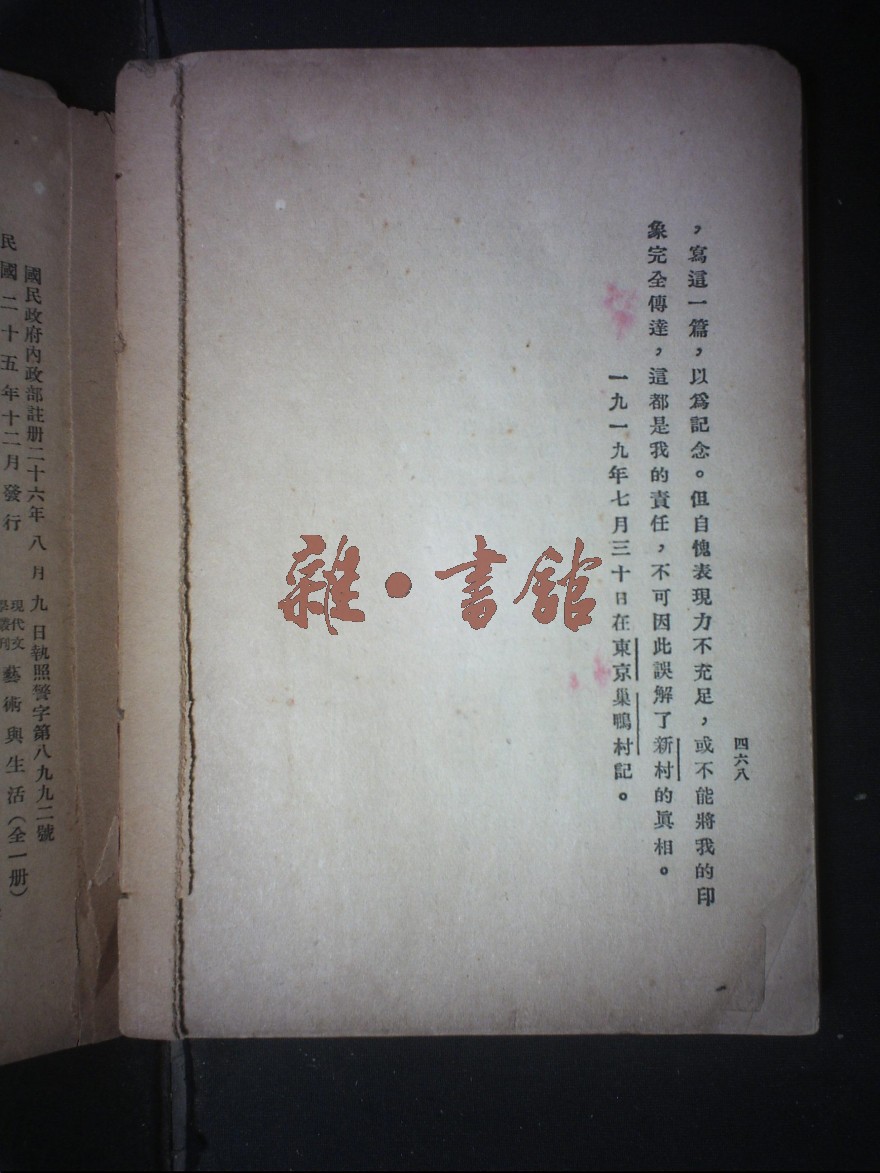 四六八
，寫這一篇，以爲記念。但自愧表現力不充足，或不能將我的印
象完全傳達，這都是我的責任，不可因此誤解了新村的眞相。
一九一九年七月三十日在東京巢鴨村記。
雜·書館
國民政府內政部註册二十六年八月九日執照警字第八九九二號
民國二十五年十二月發行
現代文
學叢刊
藝術與生活（全一册）